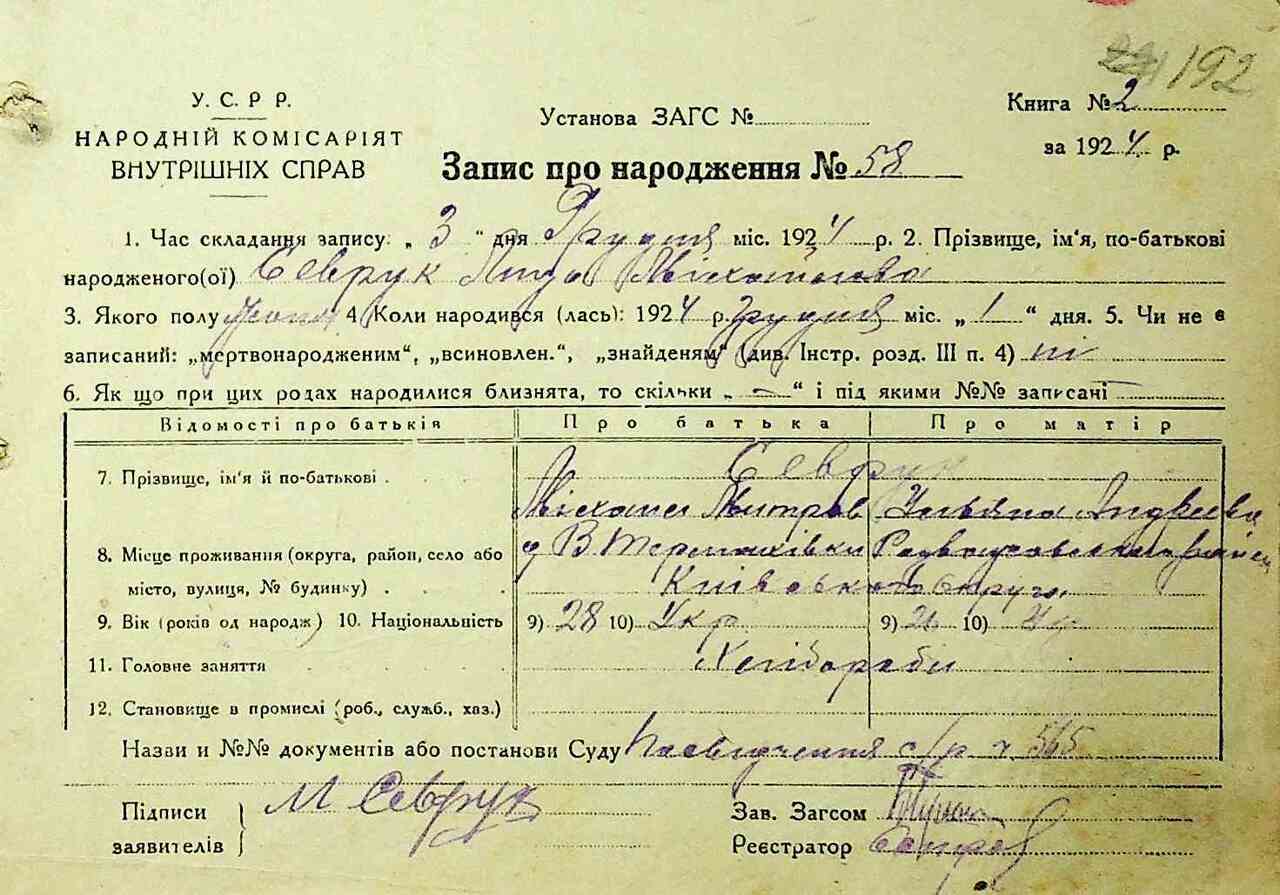 192
У. С. Р. Р.
НАРОДНІЙ КОМІСАРІЯТ
ВНУТРІШНІХ СПРАВ
Установа ЗАГС №
Книга № 2
за 1924 р.
Запис про народження № 58
1. Час складання запису: „ 3 “ дня Грудня міс. 1924 р. 2. Прізвище, ім'я, по-батькові
народженого(ої) Севрук Міхайлова
3. Якого полу 4. Коли народився (лась): 1924 р. грудня міс. „ 1 “ дня. 5. Чи не є
записаний: „мертвонародженим“, „всиновлен.“, „знайденям“ (див. Інстр. розд. III п. 4) ні
6. Як що при цих родах народилися близнята, то скільки „ — “ і під якими №№ записані
Відомості про батьків Про батька Про матір
7. Прізвище, ім'я й по-батькові Севрук
Міхаил Митров Ульяна Андреева
8. Місце проживання (округа, район, село або
місто, вулиця, № будинку) Київського округу
9. Вік (років од народж) 10. Національність 9) 28 10) Укр 9) 10) Ук
11. Головне заняття Хлібороби
12. Становище в промислі (роб., служб., хаз.)
Назви и №№ документів або постанови Суду Посвідчення с/р ч 565
Підписи
заявителів
М Севрук
Зав. Загсом
Реєстратор